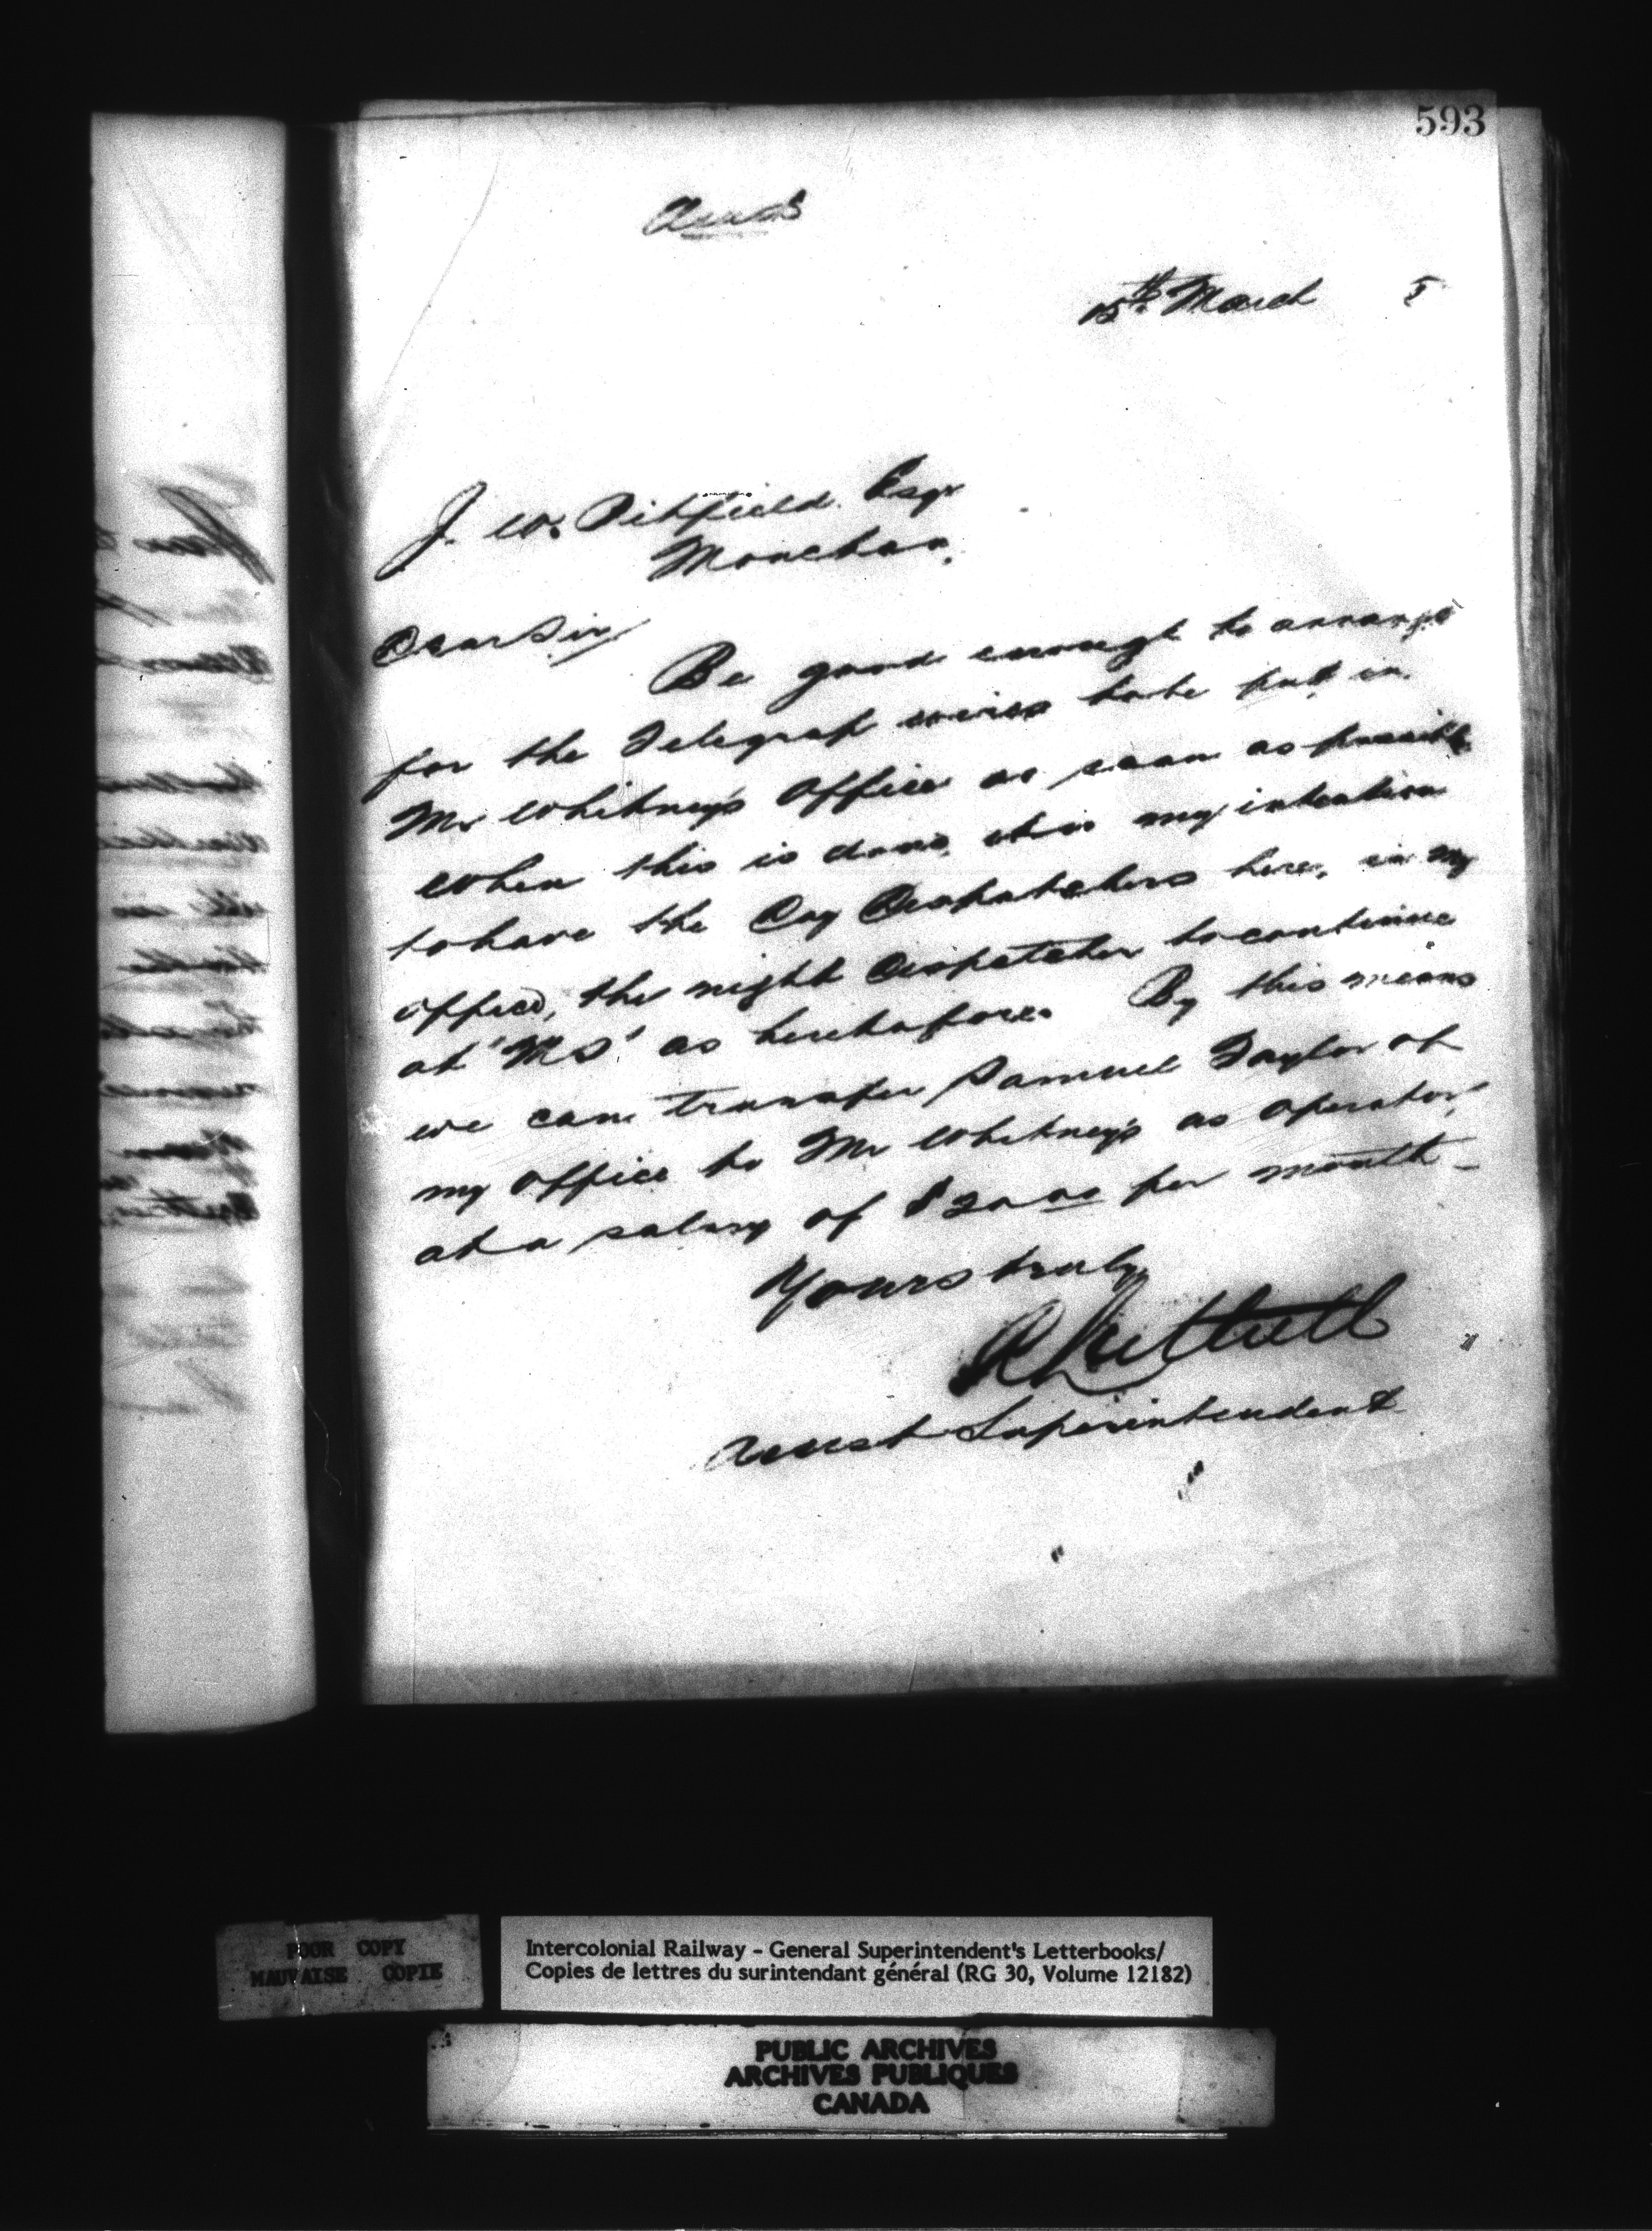 593
15th March 5
J. W. Pitfield. Esqr
Moncton.
Dear Sir/
Be good enough to arrange
for the Telegraph wires to be put in
Mr Whitney's Office as soon as possible
When this is done, it is my intention
to have the Day Despatchers here, in my
office, the night Despatcher to continue
at 'MS' as heretofore. By this means
we can transfer Samuel Taylor of
my office to Mr Whitney's as Operator,
at a salary of $20.00 per month -
Yours truly
Asst Superintendent
POOR COPY
MAUVAISE COPIE
Intercolonial Railway - General Superintendent's Letterbooks/
Copies de lettres du surintendant général (RG 30, Volume 12182)
PUBLIC ARCHIVES
ARCHIVES PUBLIQUES
CANADA